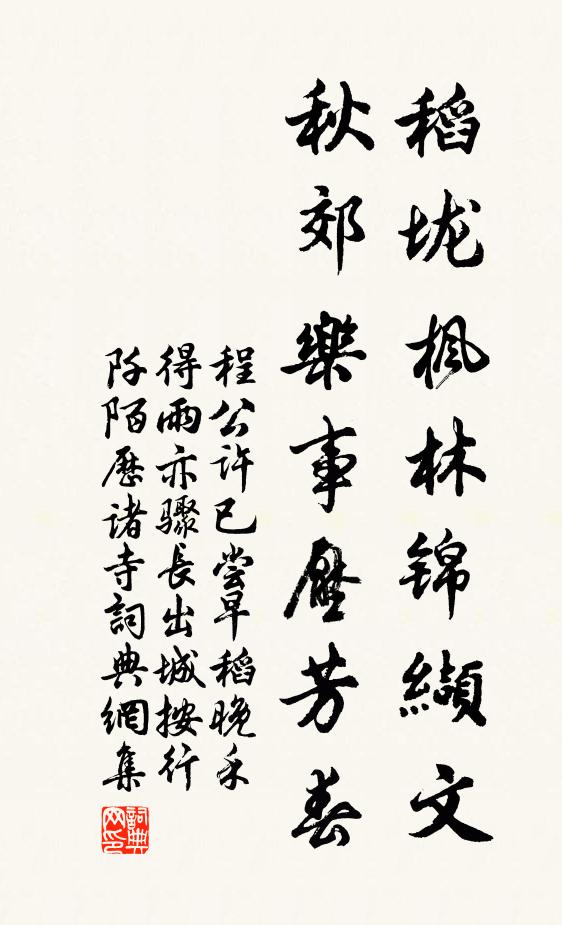 稻垅枫林锦纈文
秋郊樂事壓芳春
程公许已尝早稻晚禾
得雨亦骤長出城按行
阡陌歷诸寺詞典網集
詞典网印